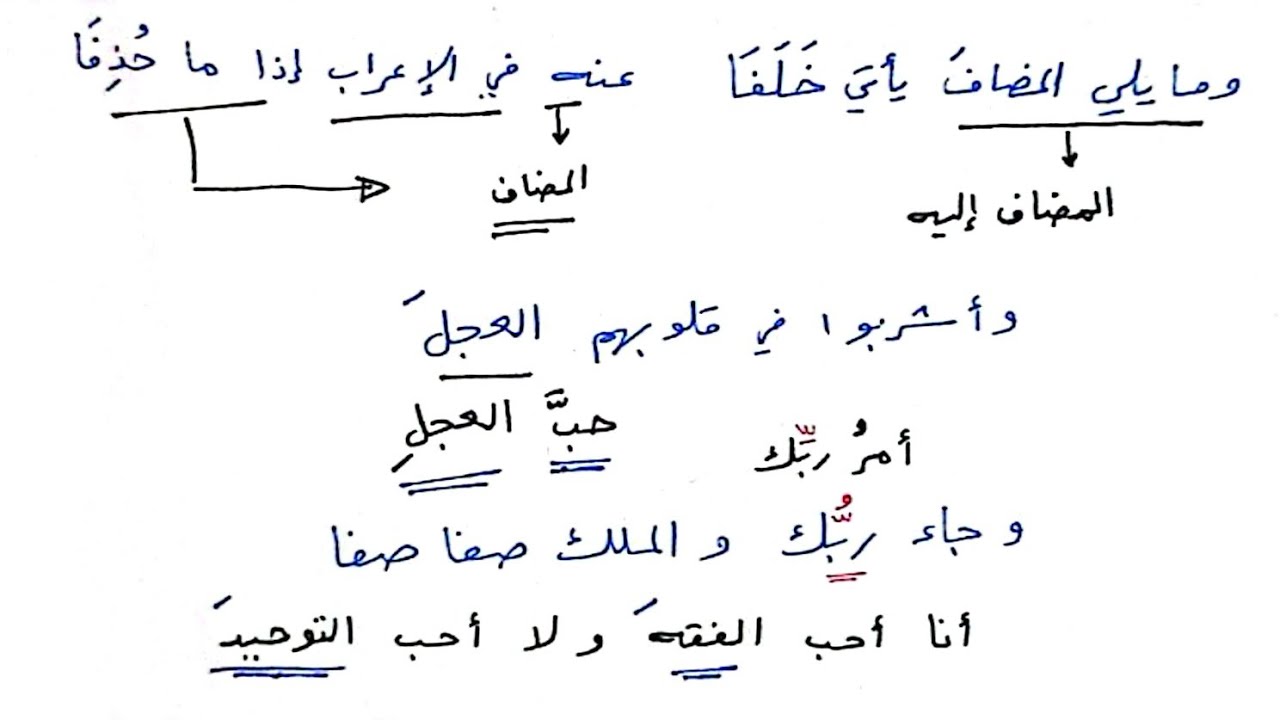 وما يلي المضافَ يأتي خَلَفَا عنه في الإعراب إذا ما حُذِفَا
المضاف إليه المضاف
وأشربوا في قلوبهم العجلَ
حبَّ العجلِ
أمرُ ربِّك
وجاء ربُّك والملك صفا صفا
أنا أحب الفقهَ ولا أحب التوحيدَ